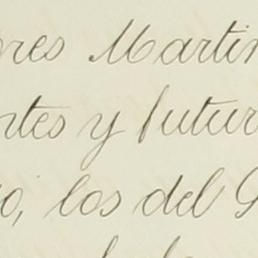 ores Martin
ntes y futur
o, los del G